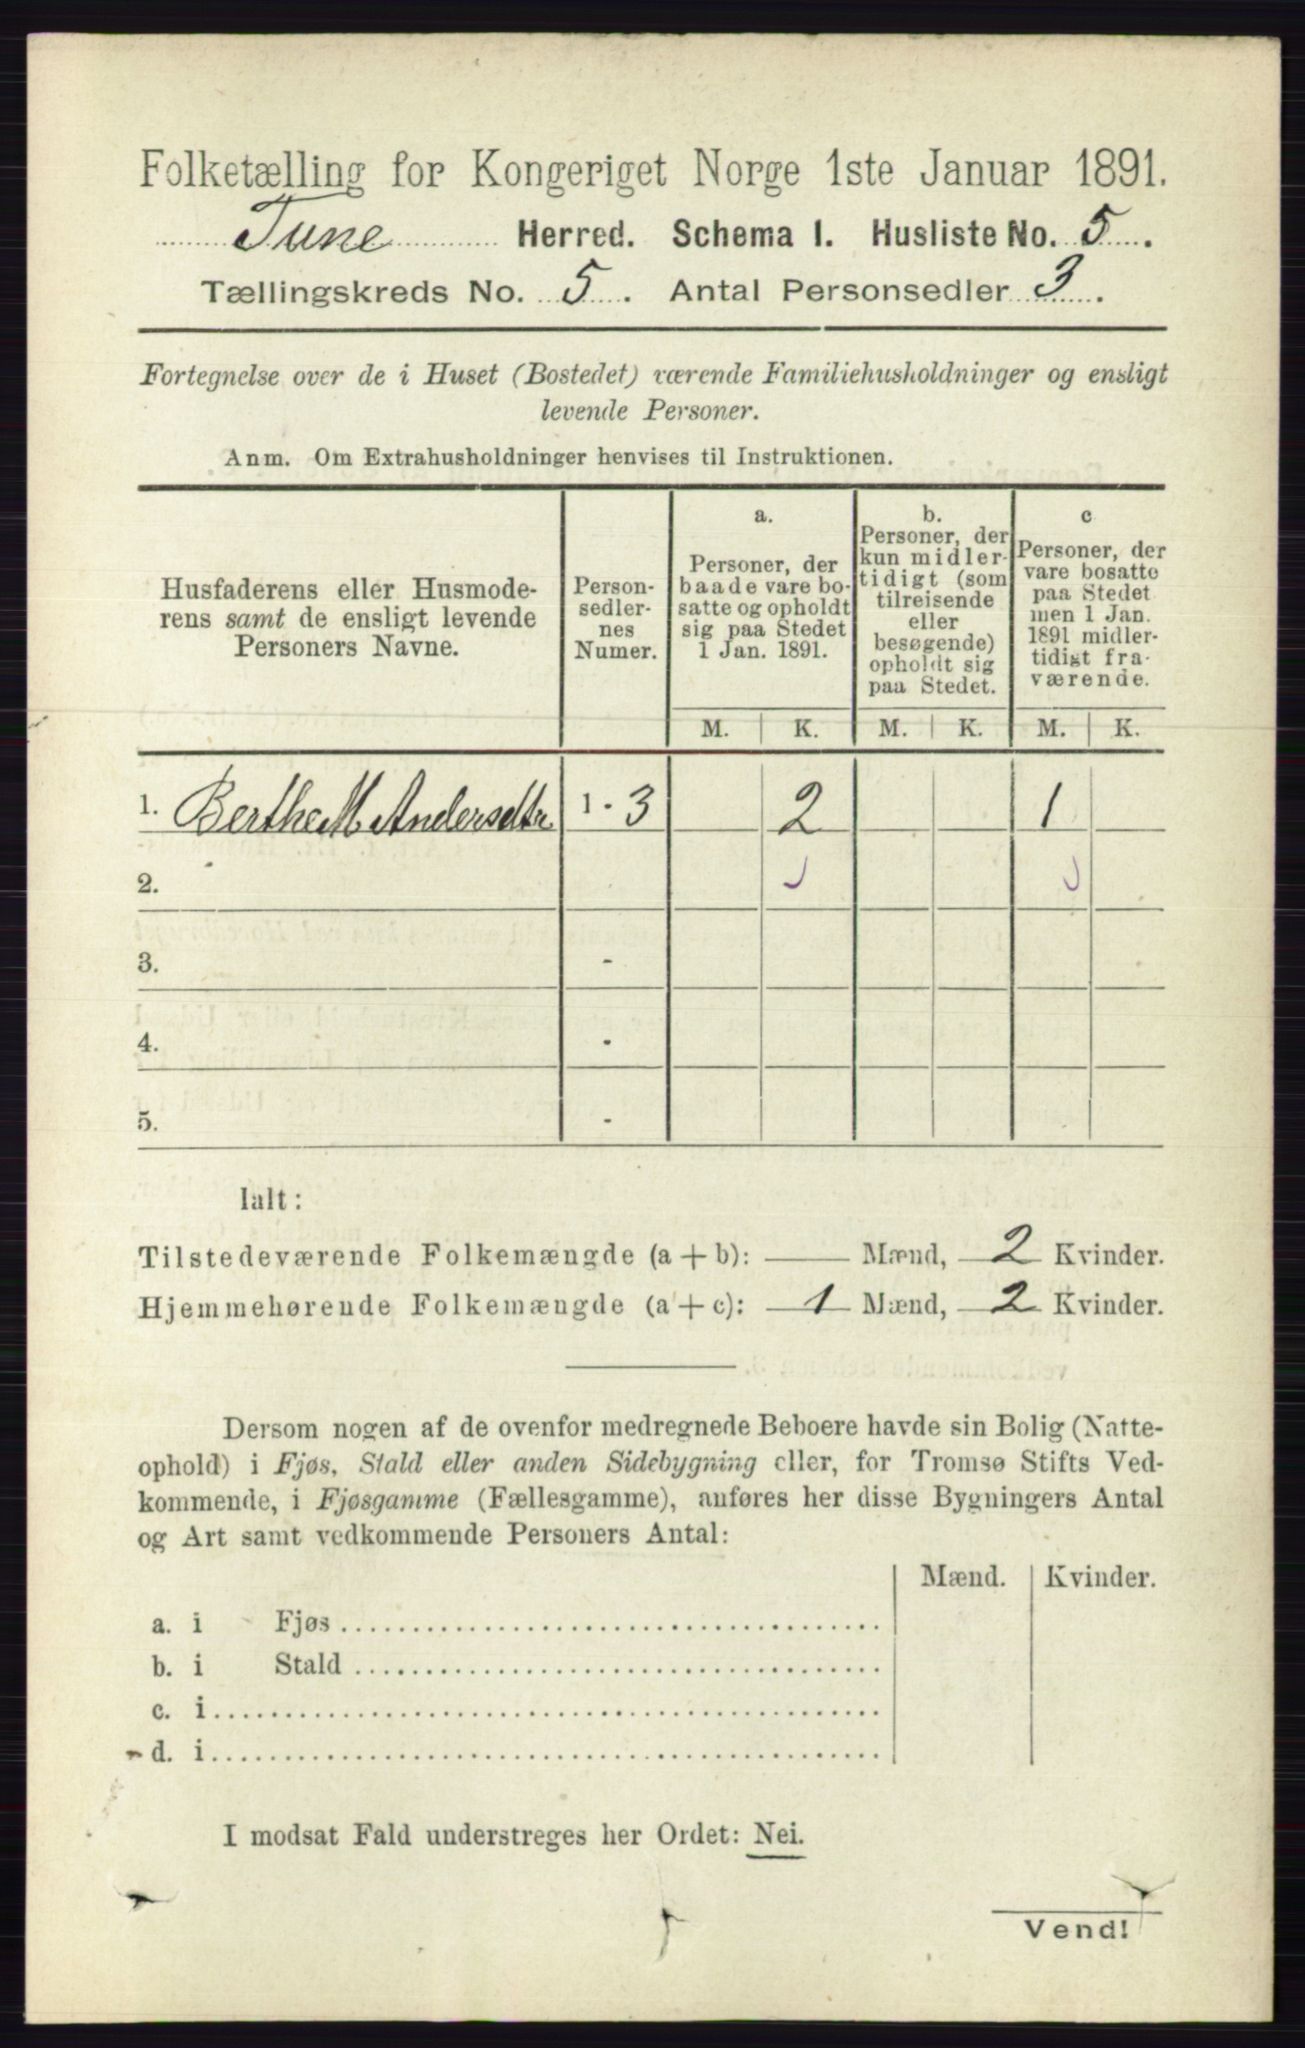 Folketælling for Kongeriget Norge 1ste Januar 1891.
Tune Herred. Schema I. Husliste No. 5.
Tællingskreds No. 5. Antal Personsedler 3.
Fortegnelse over de i Huset (Bostedet) værende Familiehusholdninger og ensligt
levende Personer.
Anm. Om Extrahusholdninger henvises til Instruktionen.
Husfaderens eller Husmode-
rens samt de ensligt levende
Personers Navne.
Person-
sedler-
nes
Numer.
a.
Personer, der
baade vare bo-
satte og opholdt
sig paa Stedet
1 Jan. 1891.
b.
Personer, der
kun midler-
tidigt (som
tilreisende
eller
besøgende)
opholdt sig
paa Stedet.
c
Personer, der
vare bosatte
paa Stedet
men 1 Jan.
1891 midler-
tidigt fra-
værende.
M. K. M. K. M. K.
1. Berthe M. Andersdtr 1 - 3 2 1
2.
3. -
4. -
5. -
Ialt:
Tilstedeværende Folkemængde (a + b): — Mænd, 2 Kvinder.
Hjemmehørende Folkemængde (a + c): 1 Mænd, 2 Kvinder.
Dersom nogen af de ovenfor medregnede Beboere havde sin Bolig (Natte-
ophold) i Fjøs, Stald eller anden Sidebygning eller, for Tromsø Stifts Ved-
kommende, i Fjøsgamme (Fællesgamme), anføres her disse Bygningers Antal
og Art samt vedkommende Personers Antal:
Mænd. Kvinder.
a. i Fjøs
b. i Stald
c. i
d. i
I modsat Fald understreges her Ordet: Nei.
Vend!